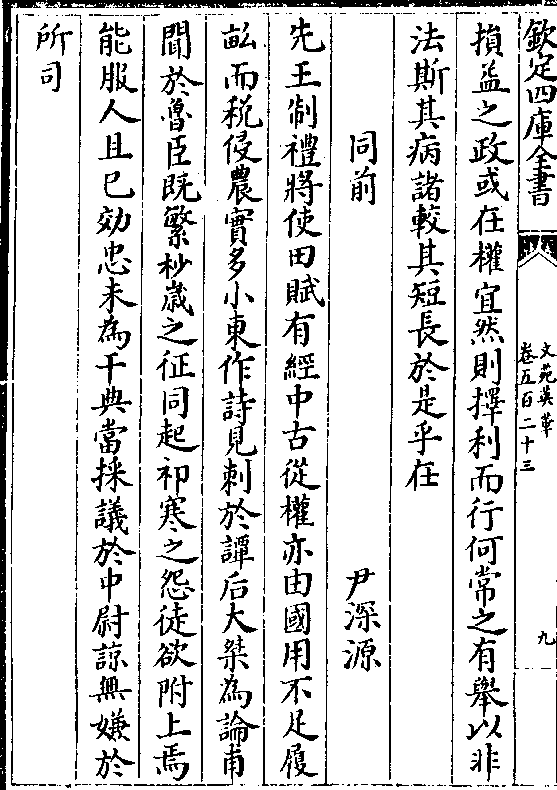 欽定四庫全書
文苑英華
卷五百二十三
九
損益之政或在權宜然則擇利而行何常之有舉以非
法斯其病諸較其短長於是乎在
同前
尹深源
先王制禮將使田賦有經中古從權亦由國用不足履
畝而稅侵農實多小東作詩見刺於譚后大桀為論甫
聞於魯臣既繁杪歲之征同起祁寒之怨徒欲附上焉
能服人且已効忠未為干典當採議於中尉諒無嫌於
所司